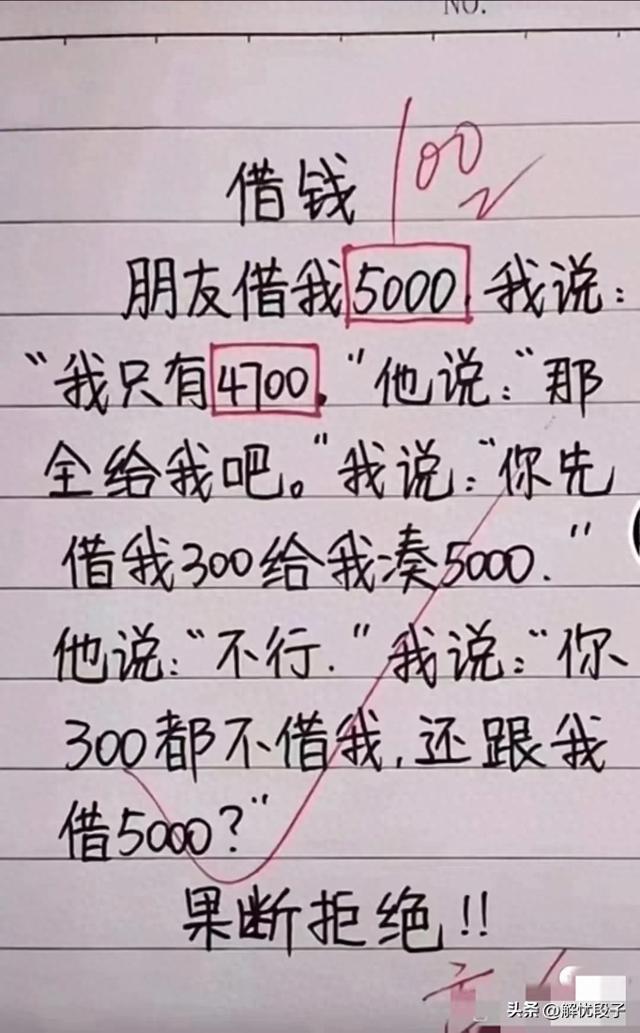 NO.
100
借钱
朋友借我5000,我说:
“我只有4700.”他说:“那
全给我吧。”我说:“你先
借我300给我凑5000.”
他说:“不行.”我说:“你
300都不借我,还跟我
借5000?”
果断拒绝!!
头条 @解忧段子